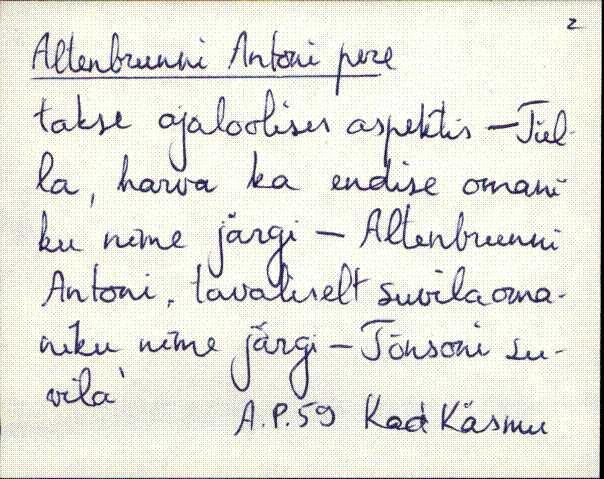 2
Altenbrunni Antoni pere
takse ajaloolises aspektis – Tiel-
la, harva ka endise omani
ku nime järgi – Altenbrunni
Antoni, tavaliselt suvilaoma-
niku nime järgi – Tõnsoni su-
vila'
A.P.59 Kad Käsmu